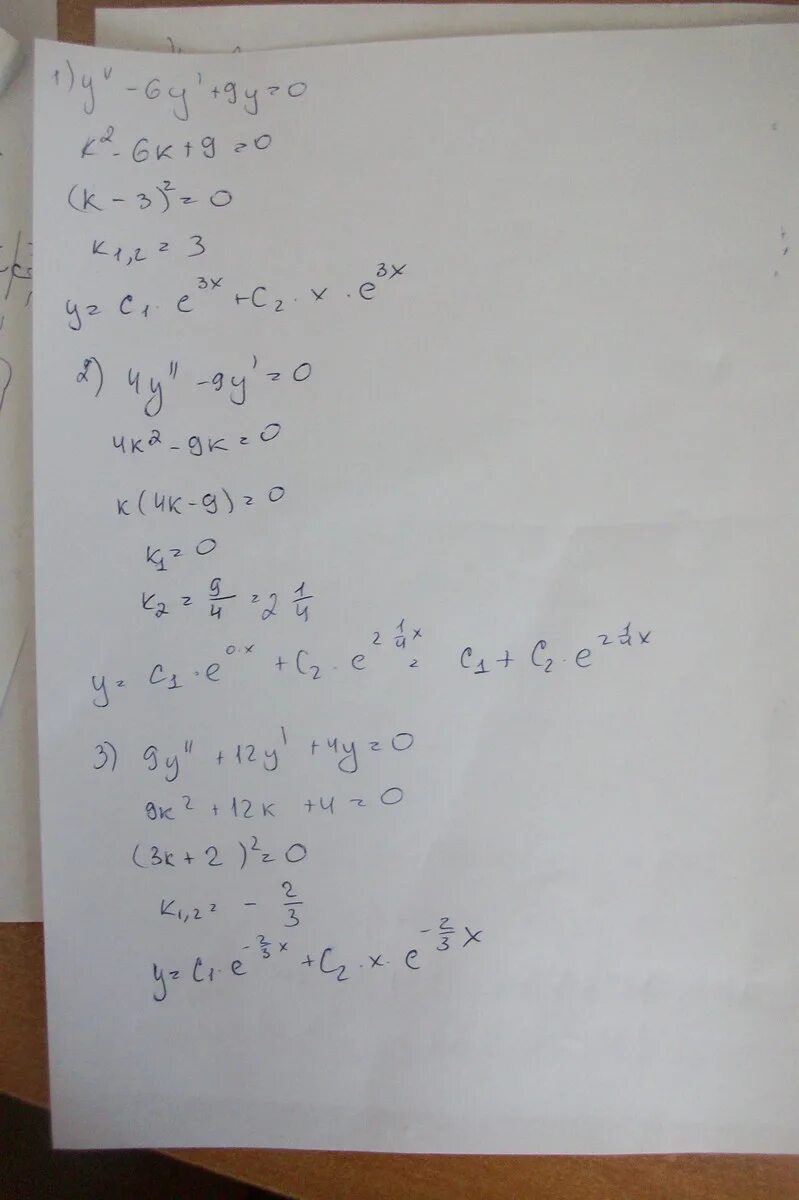 1) y'' - 6y' + 9y = 0
k² - 6k + 9 = 0
(k - 3)² = 0
k₁,₂ = 3
y = C₁ · e^{3x} + C₂ · x · e^{3x}
2) 4y'' - 9y' = 0
4k² - 9k = 0
k(4k - 9) = 0
k₁ = 0
k₂ = 9/4 = 2 1/4
y = C₁ · e^{0·x} + C₂ · e^{2 1/4 x} = C₁ + C₂ · e^{2 1/4 x}
3) 9y'' + 12y' + 4y = 0
9k² + 12k + 4 = 0
(3k + 2)² = 0
k₁,₂ = - 2/3
y = C₁ · e^{-2/3 x} + C₂ · x · e^{-2/3 x}